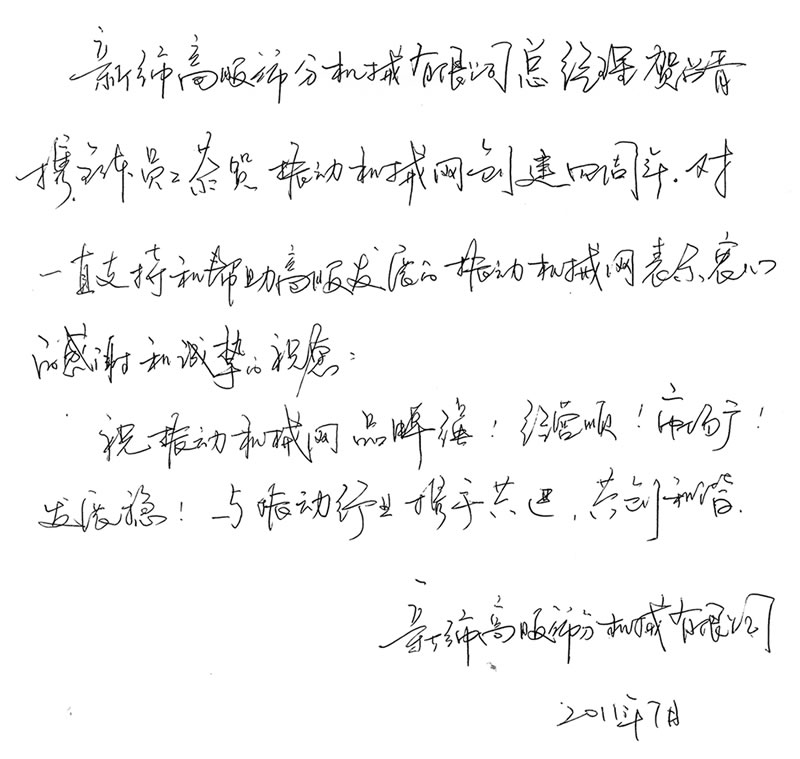 新绛高服筛分机械有限公司总经理贺尚青
携全体员工恭贺振动机械网创建四周年.对
一直支持和帮助高服发展的振动机械网表示衷心
的感谢和诚挚的祝愿:
祝振动机械网品牌强！经营顺！市场广！
发展稳！与振动行业携手共进,共创和谐.
新绛高服筛分机械有限公司
2011年7月